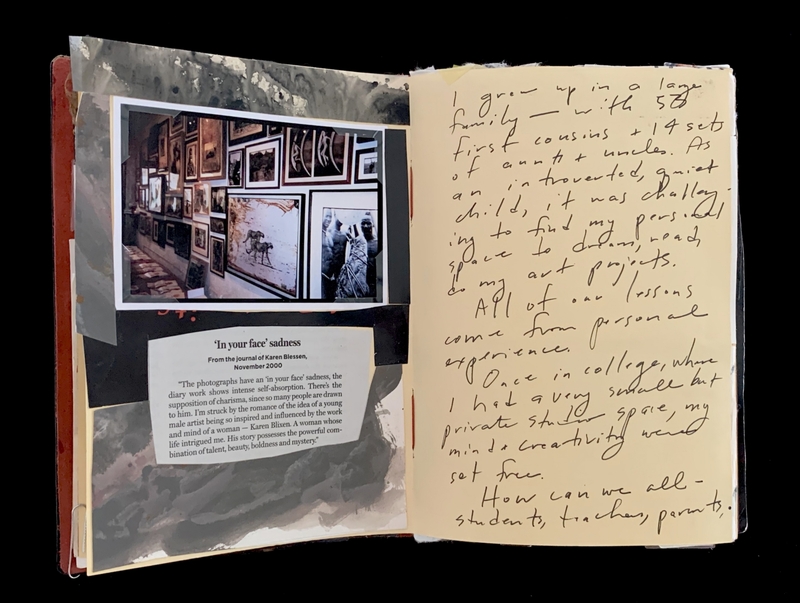 'In your face' sadness
From the journal of Karen Blessen,
November 2000
"The photographs have an 'in your face' sadness, the
diary work shows intense self-absorption. There's the
supposition of charisma, since so many people are drawn
to him. I'm struck by the romance of the idea of a young
male artist being so inspired and influenced by the work
and mind of a woman — Karen Blixen. A woman whose
life intrigued me. His story possesses the powerful com-
bination of talent, beauty, boldness and mystery."
I grew up in a large
family — with 58
first cousins + 14 sets
of aunts + uncles. As
an introverted, quiet
child, it was challeng-
ing to find my personal
space to dream, read,
do my art projects.
All of our lessons
come from personal
experience.
Once in college, where
I had a very small but
private studio space, my
mind + creativity were
set free.
How can we all –
students, teachers, parents,